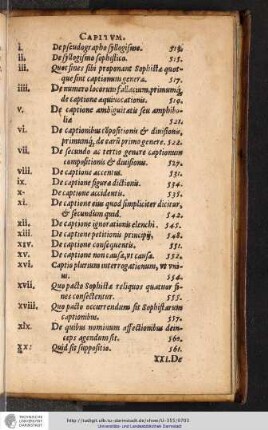 CAPITVM.
i. De pseudographo syllogismo. 512.
ii. De syllogismo sophistico. 515.
iii. Quot fines sibi proponant Sophistæ quot-
que sint captionum genera. 517.
iiii. De numero locorum fallacium, primumq́;
de captione æquiuocationis. 519.
v. De captione ambiguitatis seu amphibo-
lia 521.
vi. De captionibus cōpositionis & diuisionis,
primumq́; de earū primo genere. 522.
vii. De secundo ac tertio genere captionum
compositionis & diuisionis. 527.
viii. De captione accentus. 531.
ix. De captione figuræ dictionis. 534.
x. De captione accidentis. 535.
xi. De captione eius quod simpliciter dicitur,
& secundum quid. 542.
xii. De captione ignorationis elenchi. 545.
xiii. De captione petitionis principij. 548.
xiv. De captione consequentis. 551.
xv. De captione non causæ, vt causæ. 552.
xvi. Captio plurium interrogationum, vt vni-
us. 554.
xvii. Quo pacto Sophistæ reliquos quatuor fi-
nes consectentur. 555.
xviii. Quo pacto occurrendum sit Sophistarum
captionibus. 557.
xix. De quibus nominum affectionibus dein-
ceps agendum sit. 560.
xx: Quid sit suppositio. 561.
XXI. De
UNIVERSITÄTS- UND
LANDESBIBLIOTHEK
DARMSTADT
Universitäts- und Landesbibliothek Darmstadt